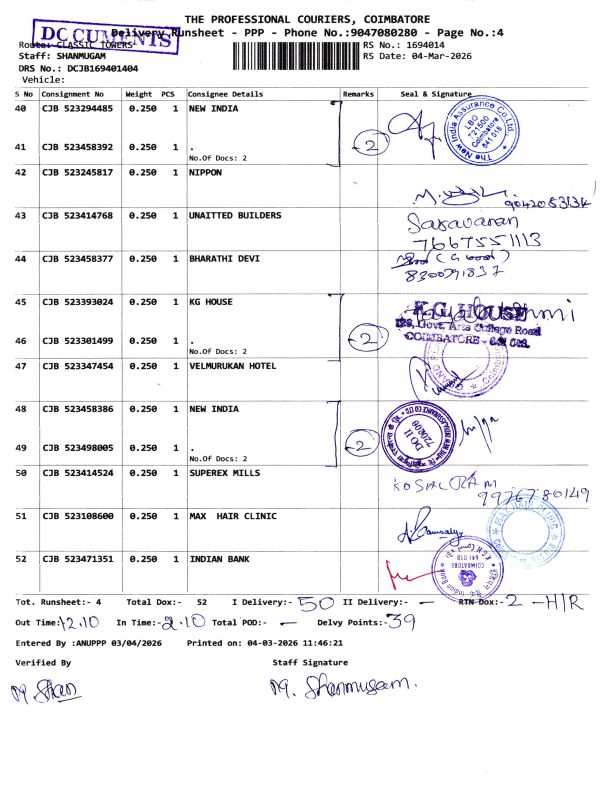 THE PROFESSIONAL COURIERS, COIMBATORE
DOCUMENTS
Delivery Runsheet - PPP - Phone No.:9047080280 - Page No.:4
Route: CLASSIC TOWERS
RS No.: 1694014
Staff: SHANMUGAM
RS Date: 04-Mar-2026
DRS No.: DCJB169401404
Vehicle:
S No Consignment No Weight PCS Consignee Details Remarks Seal & Signature
40 CJB 523294485 0.250 1 NEW INDIA
The New India Assurance Co. Ltd. LBO 721500 Coimbatore 641018
41 CJB 523458392 0.250 1 . 2
No.Of Docs: 2
42 CJB 523245817 0.250 1 NIPPON
9042053134
43 CJB 523414768 0.250 1 UNAITTED BUILDERS Saravanan
7667551113
44 CJB 523458377 0.250 1 BHARATHI DEVI
8300791837
45 CJB 523393024 0.250 1 KG HOUSE
K.G. HOUSE
Govt. Arts College Road
COIMBATORE
46 CJB 523301499 0.250 1 . 2
No.Of Docs: 2
47 CJB 523347454 0.250 1 VELMURUKAN HOTEL
48 CJB 523458386 0.250 1 NEW INDIA
DO II
720608
49 CJB 523498005 0.250 1 . 2
No.Of Docs: 2
50 CJB 523414524 0.250 1 SUPEREX MILLS KOSAL RAM
9976780149
51 CJB 523108600 0.250 1 MAX HAIR CLINIC
MAX HAIR CLINIC
52 CJB 523471351 0.250 1 INDIAN BANK
COIMBATORE
Indian Bank
Tot. Runsheet:- 4 Total Dox:- 52 I Delivery:- 50 II Delivery:- — RTN Dox:- 2 -H/R
Out Time:12.10 In Time:-2.10 Total POD:- — Delvy Points:-39
Entered By :ANUPPP 03/04/2026 Printed on: 04-03-2026 11:46:21
Verified By Staff Signature
M. Shan M. Shanmugam.